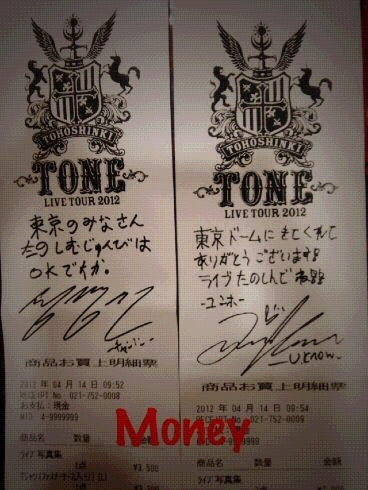 TOHOSHINKI
TONE
LIVE TOUR 2012
東京のみなさん
たのしむじゅんびは
OKですか。
チャンミン
商品お買上明細票
2012 年 04 月 14 日 09:52
RECEIPT No 021-752-0008
お支払：現金
WID 4-9999999
商品名 数量 金額
ライブ写真集
1点 ¥3,500
TOHOSHINKI
TONE
LIVE TOUR 2012
東京ドームにきてくれて
ありがとうございます
ライブたのしんでね
-ユンホ-
U-know
商品お買上明細票
2012 年 04 月 14 日 09:54
RECEIPT No 021-752-0009
お支払：現金
商品名 数量 金額
ライブ写真集
1点
Money